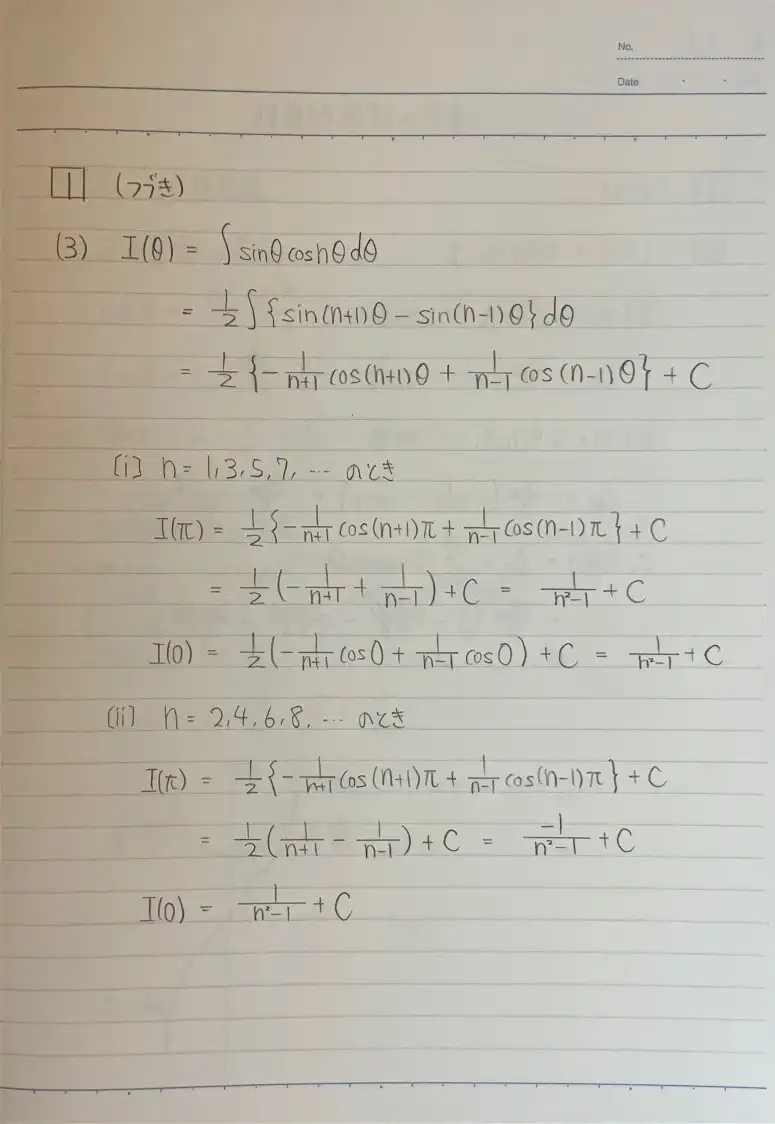 No.
Date
1 (つづき)
(3) I(θ) = ∫ sinθ cosnθ dθ
= 1/2 ∫ {sin(n+1)θ − sin(n-1)θ} dθ
= 1/2 {− 1/(n+1) cos(n+1)θ + 1/(n-1) cos(n-1)θ} + C
[i] n = 1, 3, 5, 7, … のとき
I(π) = 1/2 {− 1/(n+1) cos(n+1)π + 1/(n-1) cos(n-1)π} + C
= 1/2 (− 1/(n+1) + 1/(n-1)) + C = 1/(n²-1) + C
I(0) = 1/2 (− 1/(n+1) cos0 + 1/(n-1) cos0) + C = 1/(n²-1) + C
[ii] n = 2, 4, 6, 8, … のとき
I(π) = 1/2 {− 1/(n+1) cos(n+1)π + 1/(n-1) cos(n-1)π} + C
= 1/2 (1/(n+1) − 1/(n-1)) + C = -1/(n²-1) + C
I(0) = 1/(n²-1) + C